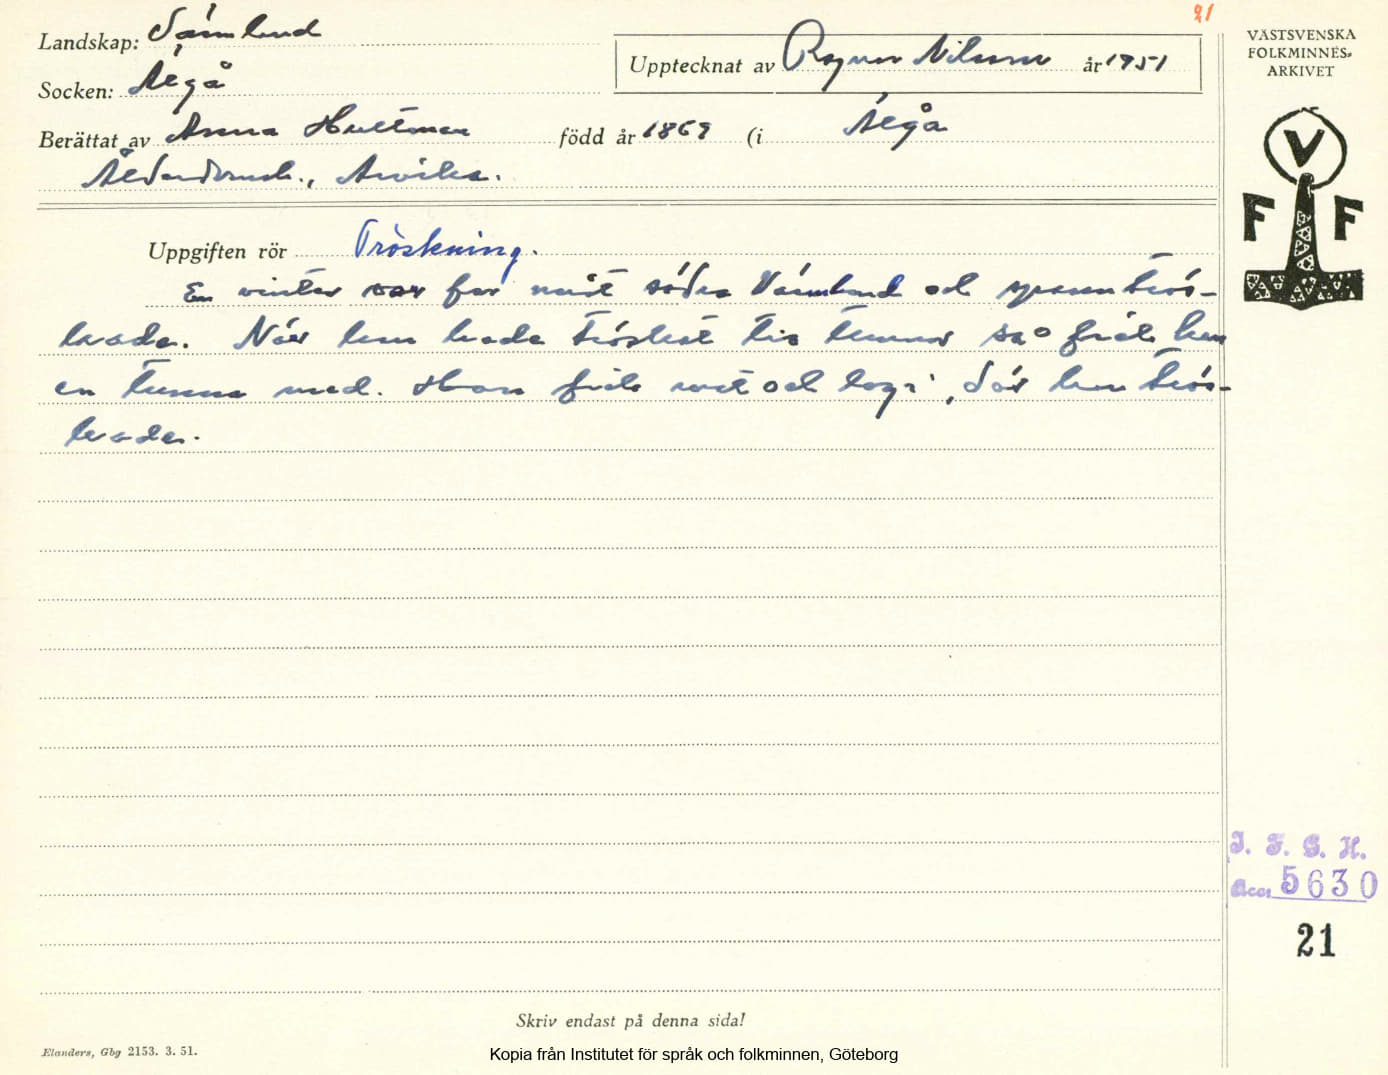 21
Landskap: Värmland
VÄSTSVENSKA
FOLKMINNES-
ARKIVET
Upptecknat av Ragnar Nilsson år 1951
Socken: Älgå
Berättat av Anna Hultman född år 1869 (i Älgå
Ålderdomsh., Arvika.
V
F F
Uppgiften rör Tröskning.
En vinter var far mist södra Värmland och trös-
kade. När han hade tröskat tia tunnor så fick han
en tunna med. Han fick mat och logi, där han trös-
kade.
I. F. G. H.
Acc. 5630
21
Skriv endast på denna sida!
Elanders, Gbg 2153. 3. 51.
Kopia från Institutet för språk och folkminnen, Göteborg